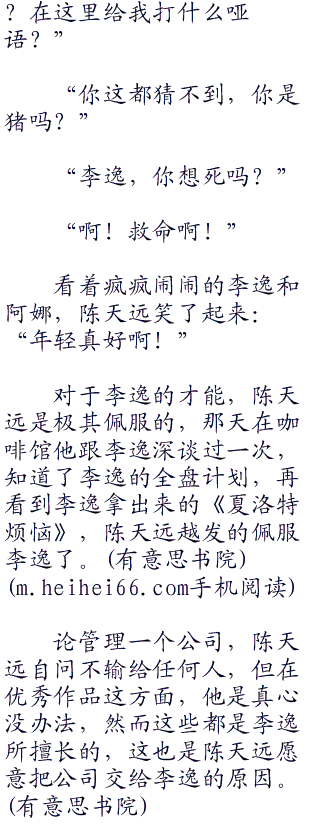 ？在这里给我打什么哑
语？”
“你这都猜不到，你是
猪吗？”
“李逸，你想死吗？”
“啊！救命啊！”
看着疯疯闹闹的李逸和
阿娜，陈天远笑了起来：
“年轻真好啊！”
对于李逸的才能，陈天
远是极其佩服的，那天在咖
啡馆他跟李逸深谈过一次，
知道了李逸的全盘计划，再
看到李逸拿出来的《夏洛特
烦恼》，陈天远越发的佩服
李逸了。(有意思书院)
(m.heihei66.com手机阅读)
论管理一个公司，陈天
远自问不输给任何人，但在
优秀作品这方面，他是真心
没办法，然而这些都是李逸
所擅长的，这也是陈天远愿
意把公司交给李逸的原因。
(有意思书院)